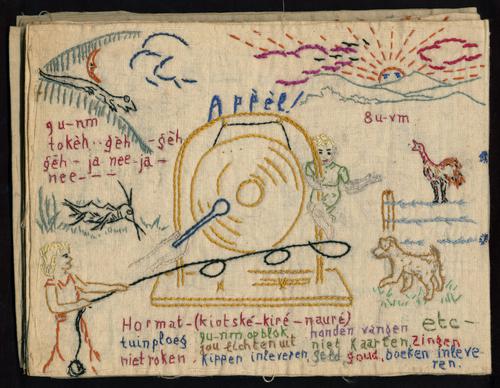 Appèl!
9 u-nm
tokèh - gèh - gèh
gèh - ja nee - ja -
nee - - -
8 u-vm
Hormat-(kiotské-kiré-nauré) etc-
tuinploeg 9u-nm op blok, honden vangen
10u lichten uit niet kaarten, zingen
niet roken. kippen inleveren, geld goud, boeken inleve-
ren.